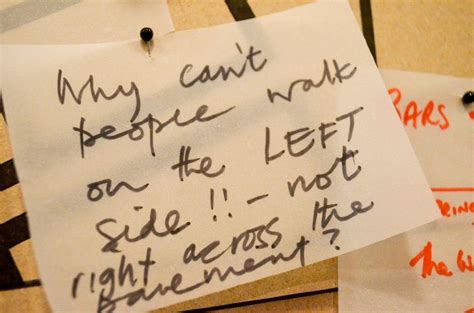 Why can't
people walk
on the LEFT
side !! - not
right across the
pavement?
BARS
The